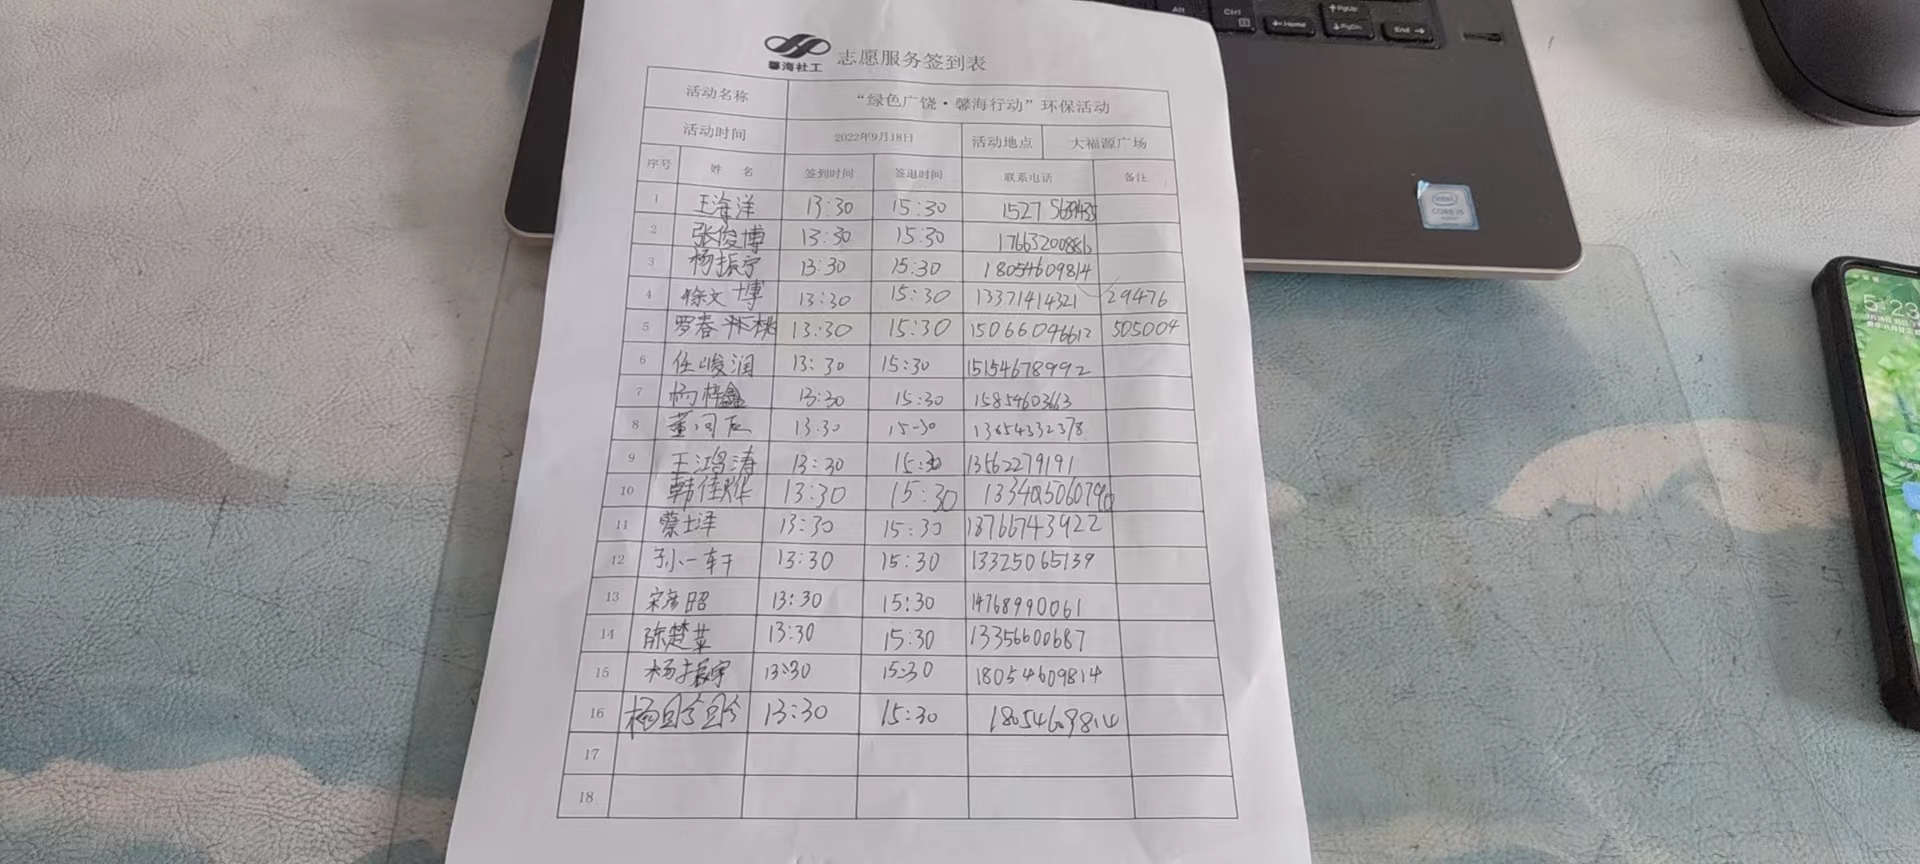 Alt Ctrl Home PgUp PgDn End
馨海社工 志愿服务签到表
活动名称 “绿色广饶·馨海行动”环保活动
活动时间 2022年9月18日 活动地点 大福源广场
序号 姓名 签到时间 签退时间 联系电话 备注
1 王海洋 13:30 15:30 1527
2 张俊博 13:30 15:30 17663200886
3 杨振宁 13:30 15:30 18054609814
4 徐文博 13:30 15:30 13371414321 29476
5 罗春 13:30 15:30 15066096612 505004
6 任峻润 13:30 15:30 15154678992
7 杨梓鑫 13:30 15:30 15854603663
8 董 13:30 15-30 13654332378
9 王鸿涛 13:30 15:30 13562279191
10 韩佳烨 13:30 15:30
11 蔡士泽 13:30 15:30 18766743922
12 孙一轩 13:30 15:30 13325065139
13 宋彦昭 13:30 15:30 14768990061
14 陈楚苹 13:30 15:30 13356600687
15 杨振宇 13:30 15:30 18054609814
16 杨 13:30 15:30 18054609814
17
18
intel
CORE i5
5:23